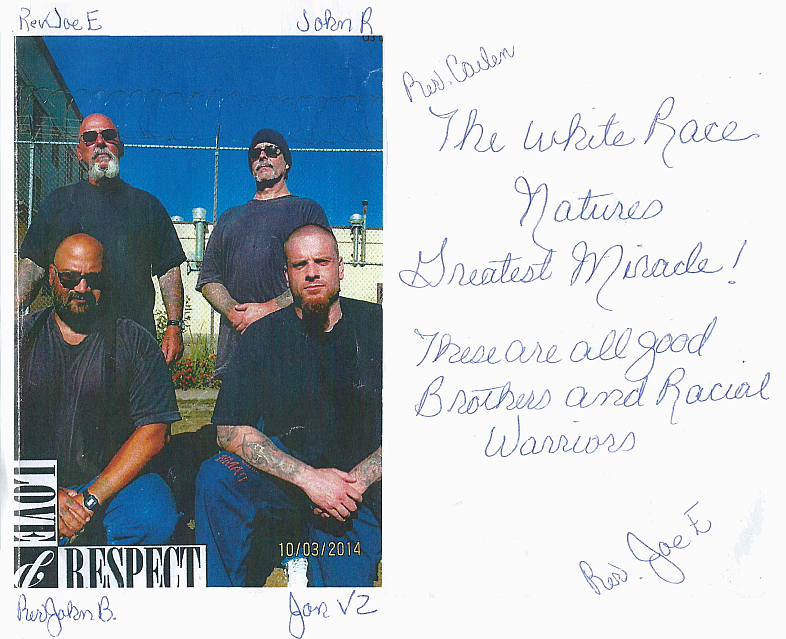 Rev. Joe E
John R
LOVE
&
RESPECT
10/03/2014
Rev John B.
Jon VZ
The White Race
Natures
Greatest Miracle!
These are all good
Brothers and Racial
Warriors
Rev. Joe E